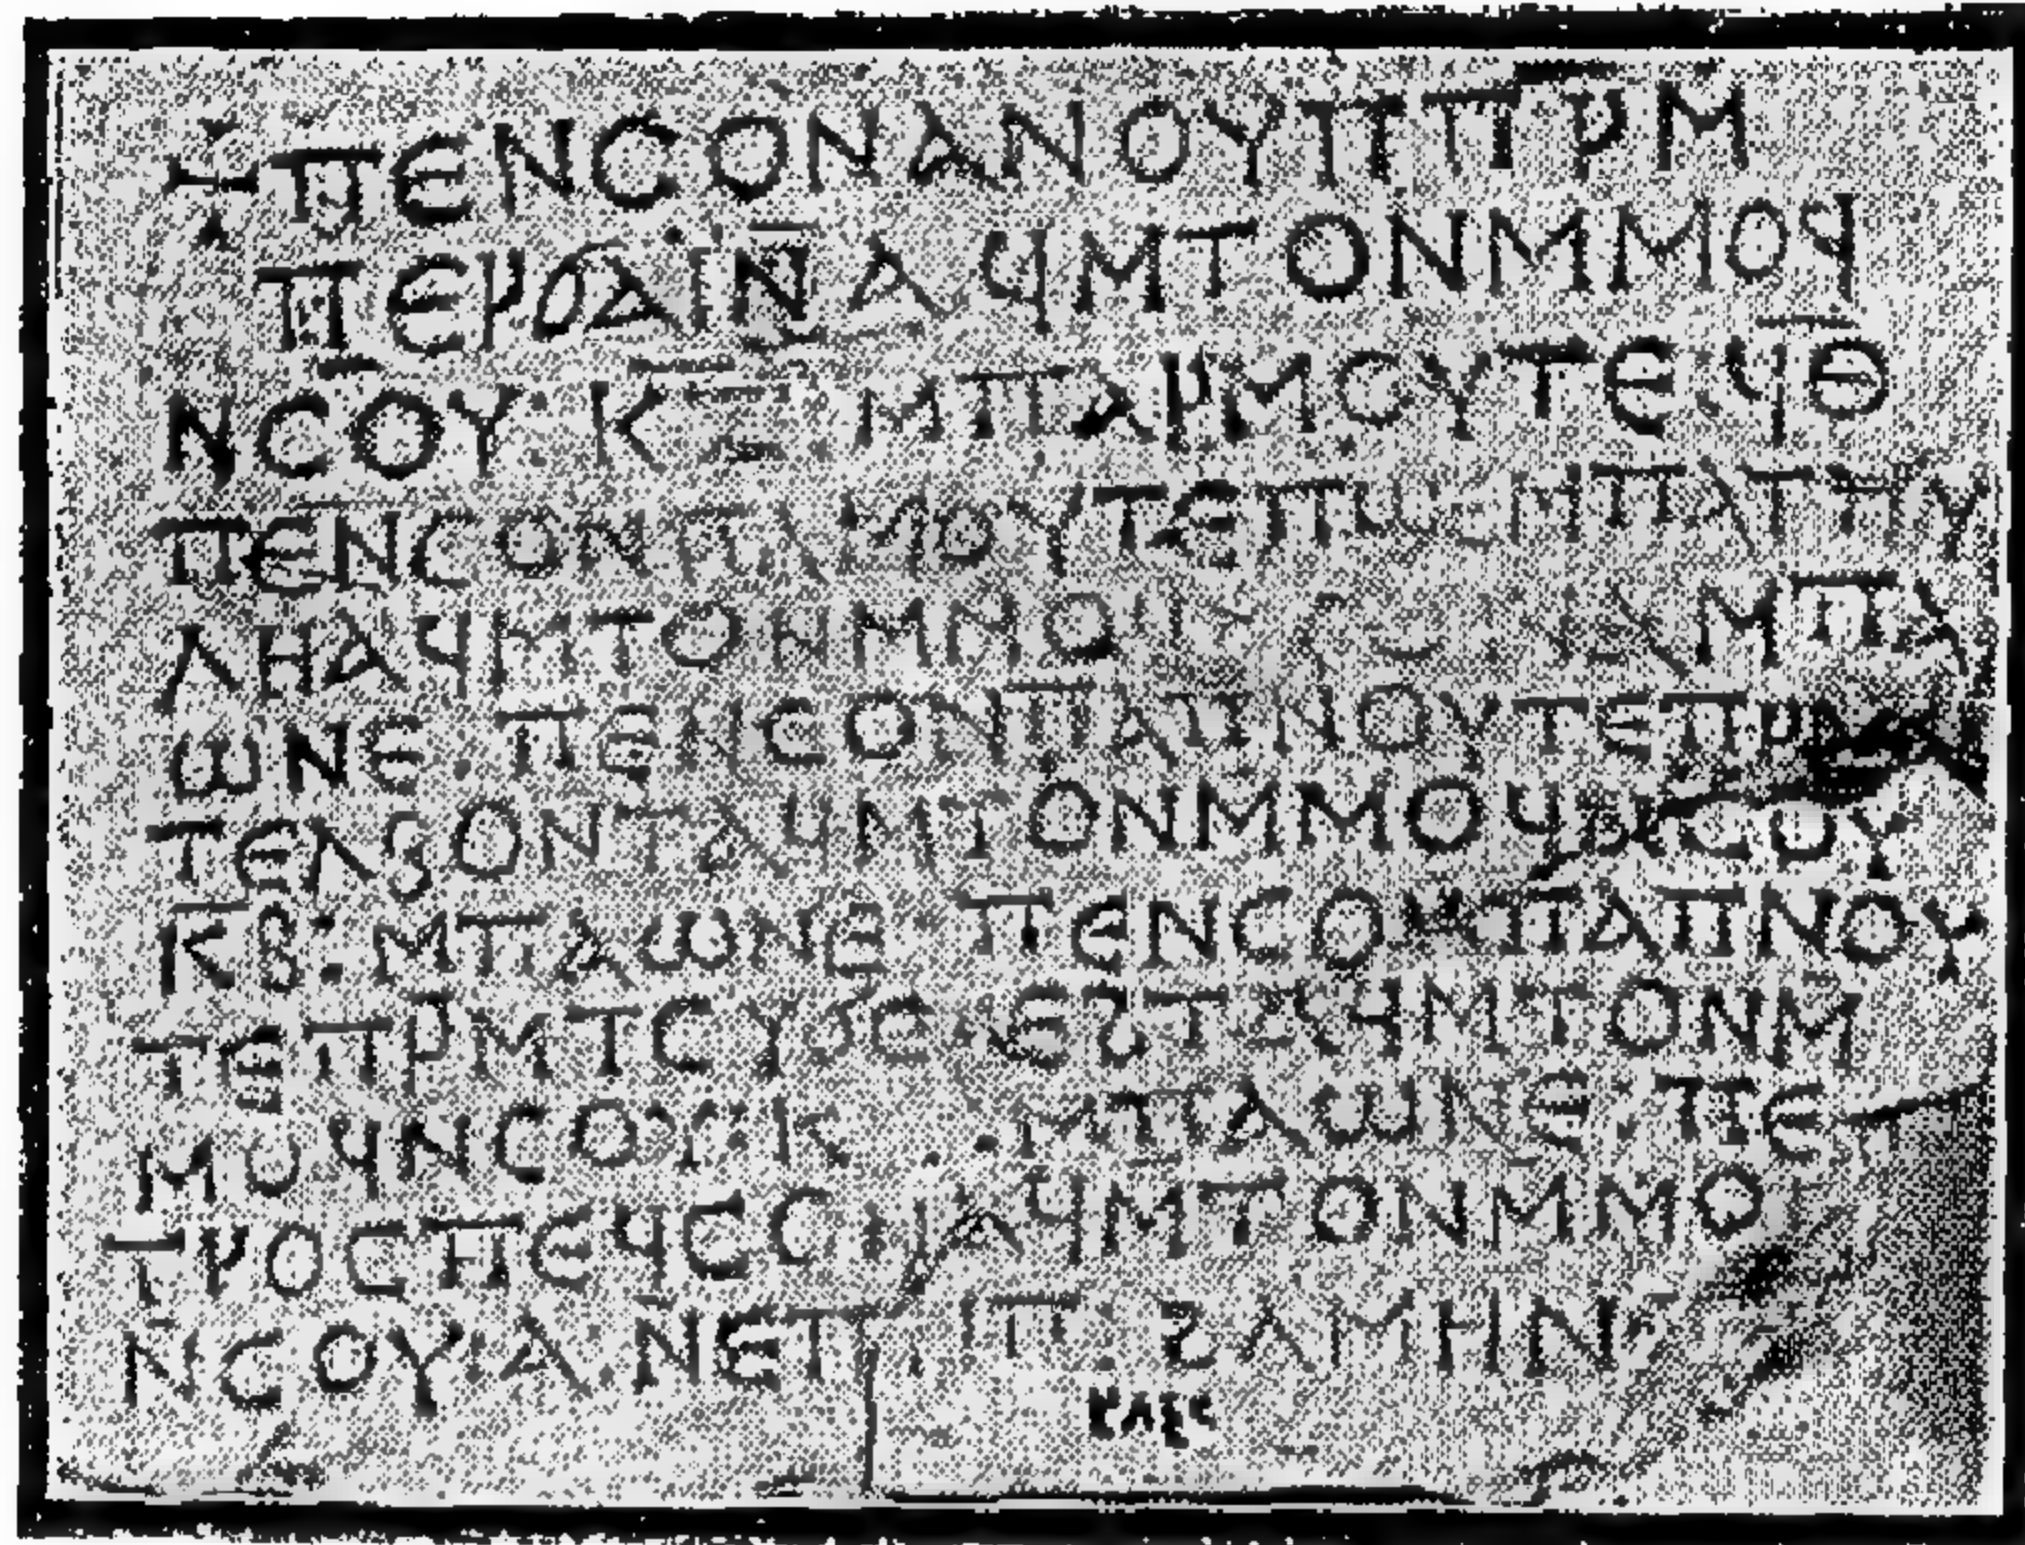 ⳁ ⲠⲈⲚⲤⲞⲚⲀⲚⲞⲨⲠⲠⲢⲘ
ⲠⲈⲢϬⲀⲒⲚⲀϤⲘⲦⲞⲚⲘⲘⲞϤ
ⲚⲤⲞⲨ·Ⲕ ⲘⲠⲀⲢⲘⲞⲨⲦⲈ·ϤⲐ
ⲠⲈⲚⲤⲞⲚ ⲘⲠⲀⲦⲎⲨ
ⲖⲎⲀϤⲘⲦⲞⲚⲘⲘⲞ ⲘⲠⲀ
ⲰⲚⲈ·ⲠⲈⲚⲤⲞⲚⲠⲀⲠⲚⲞⲨⲦⲈⲠⲢⲘ
ⲦⲈⲖⲤⲞⲚⲦⲀϤⲘⲦⲞⲚⲘⲘⲞϤ ⲤⲞⲨ
ⲔⲂ:ⲘⲠⲀⲰⲚⲈ ⲠⲈⲚⲤⲞⲚⲠⲀⲠⲚⲞⲨ
ⲦⲈⲠⲢⲘⲦⲤⲨϬⲈ ϤⲘⲦⲞⲚⲘ
ⲘⲞϤⲚⲤⲞⲨ·Ⲕ ·ⲘⲠⲀⲰⲚⲈ:ⲠⲈⲦ
ⲢⲞⲤⲠⲈϤⲤⲞⲚ ⲀϤⲘⲦⲞⲚⲘⲘⲞ
ⲚⲤⲞⲨⲒⲀ·ⲚⲈⲦ ⲀⲘⲎⲚ